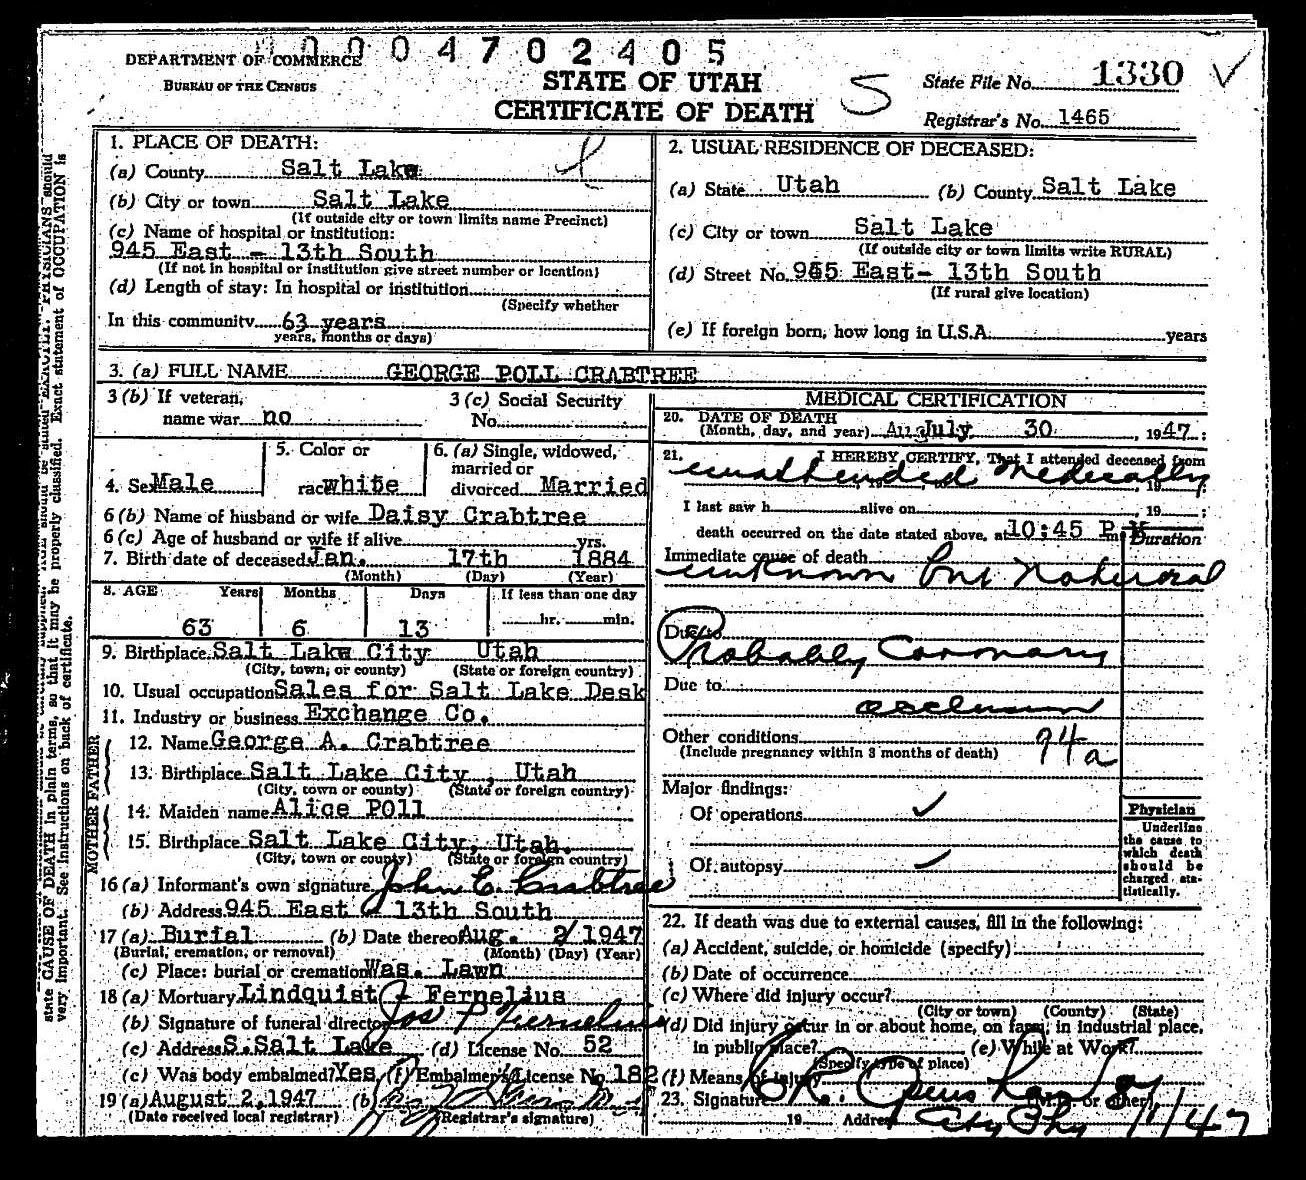 0004702405
DEPARTMENT OF COMMERCE
BUREAU OF THE CENSUS
STATE OF UTAH
CERTIFICATE OF DEATH
S
State File No. 1330
Registrar's No. 1465
1. PLACE OF DEATH:
(a) County Salt Lake
(b) City or town Salt Lake
(If outside city or town limits name Precinct)
(c) Name of hospital or institution:
945 East - 13th South
(If not in hospital or institution give street number or location)
(d) Length of stay: In hospital or institution
(Specify whether
In this community 63 years
years, months or days)
2. USUAL RESIDENCE OF DECEASED:
(a) State Utah (b) County Salt Lake
(c) City or town Salt Lake
(If outside city or town limits write RURAL)
(d) Street No. 945 East- 13th South
(If rural give location)
(e) If foreign born, how long in U.S.A. years
3. (a) FULL NAME GEORGE POLL CRABTREE
3 (b) If veteran, name war no
3 (c) Social Security No.
4. Sex Male
5. Color or race white
6. (a) Single, widowed, married or divorced Married
6 (b) Name of husband or wife Daisy Crabtree
6 (c) Age of husband or wife if alive yrs.
7. Birth date of deceased Jan. 17th 1884
(Month) (Day) (Year)
8. AGE Years Months Days If less than one day
63 6 13 hr. min.
9. Birthplace Salt Lake City Utah
(City, town, or county) (State or foreign country)
10. Usual occupation Sales for Salt Lake Desk
11. Industry or business Exchange Co.
FATHER
12. Name George A. Crabtree
13. Birthplace Salt Lake City, Utah
(City, town or county) (State or foreign country)
MOTHER
14. Maiden name Alice Poll
15. Birthplace Salt Lake City, Utah.
(City, town or county) (State or foreign country)
16 (a) Informant's own signature John E. Crabtree
(b) Address 945 East 13th South
17 (a) Burial (b) Date thereof Aug. 2/ 1947
(Burial, cremation, or removal) (Month) (Day) (Year)
(c) Place: burial or cremation Was. Lawn
18 (a) Mortuary Lindquist - Fernelius
(b) Signature of funeral director Jos P Fernelius
(c) Address S. Salt Lake (d) License No. 52
(c) Was body embalmed? Yes (f) Embalmer's License No. 182
19 (a) August 2, 1947 (b)
(Date received local registrar) (Registrar's signature)
MEDICAL CERTIFICATION
20. DATE OF DEATH
(Month, day, and year) July 30, 1947:
21. I HEREBY CERTIFY, That I attended deceased from
unattended medically 19
I last saw h alive on , 19 ;
death occurred on the date stated above, at 10:45 P m
Duration
Immediate cause of death
unknown but natural
Due to
Probably Coronary
Due to
occlusion
Other conditions 94a
(Include pregnancy within 3 months of death)
Major findings:
Of operations
Of autopsy
Physician
Underline the cause to which death should be charged statistically.
22. If death was due to external causes, fill in the following:
(a) Accident, suicide, or homicide (specify)
(b) Date of occurrence
(c) Where did injury occur?
(City or town) (County) (State)
(d) Did injury occur in or about home, on farm, in industrial place,
in public place? (e) While at Work?
(Specify type of place)
(f) Means of injury
23. Signature (M.D. or other)
19 Address City Phy
state CAUSE OF DEATH in plain terms, so that it may be properly classified. Exact statement of OCCUPATION is
very important. See instructions on back of certificate.